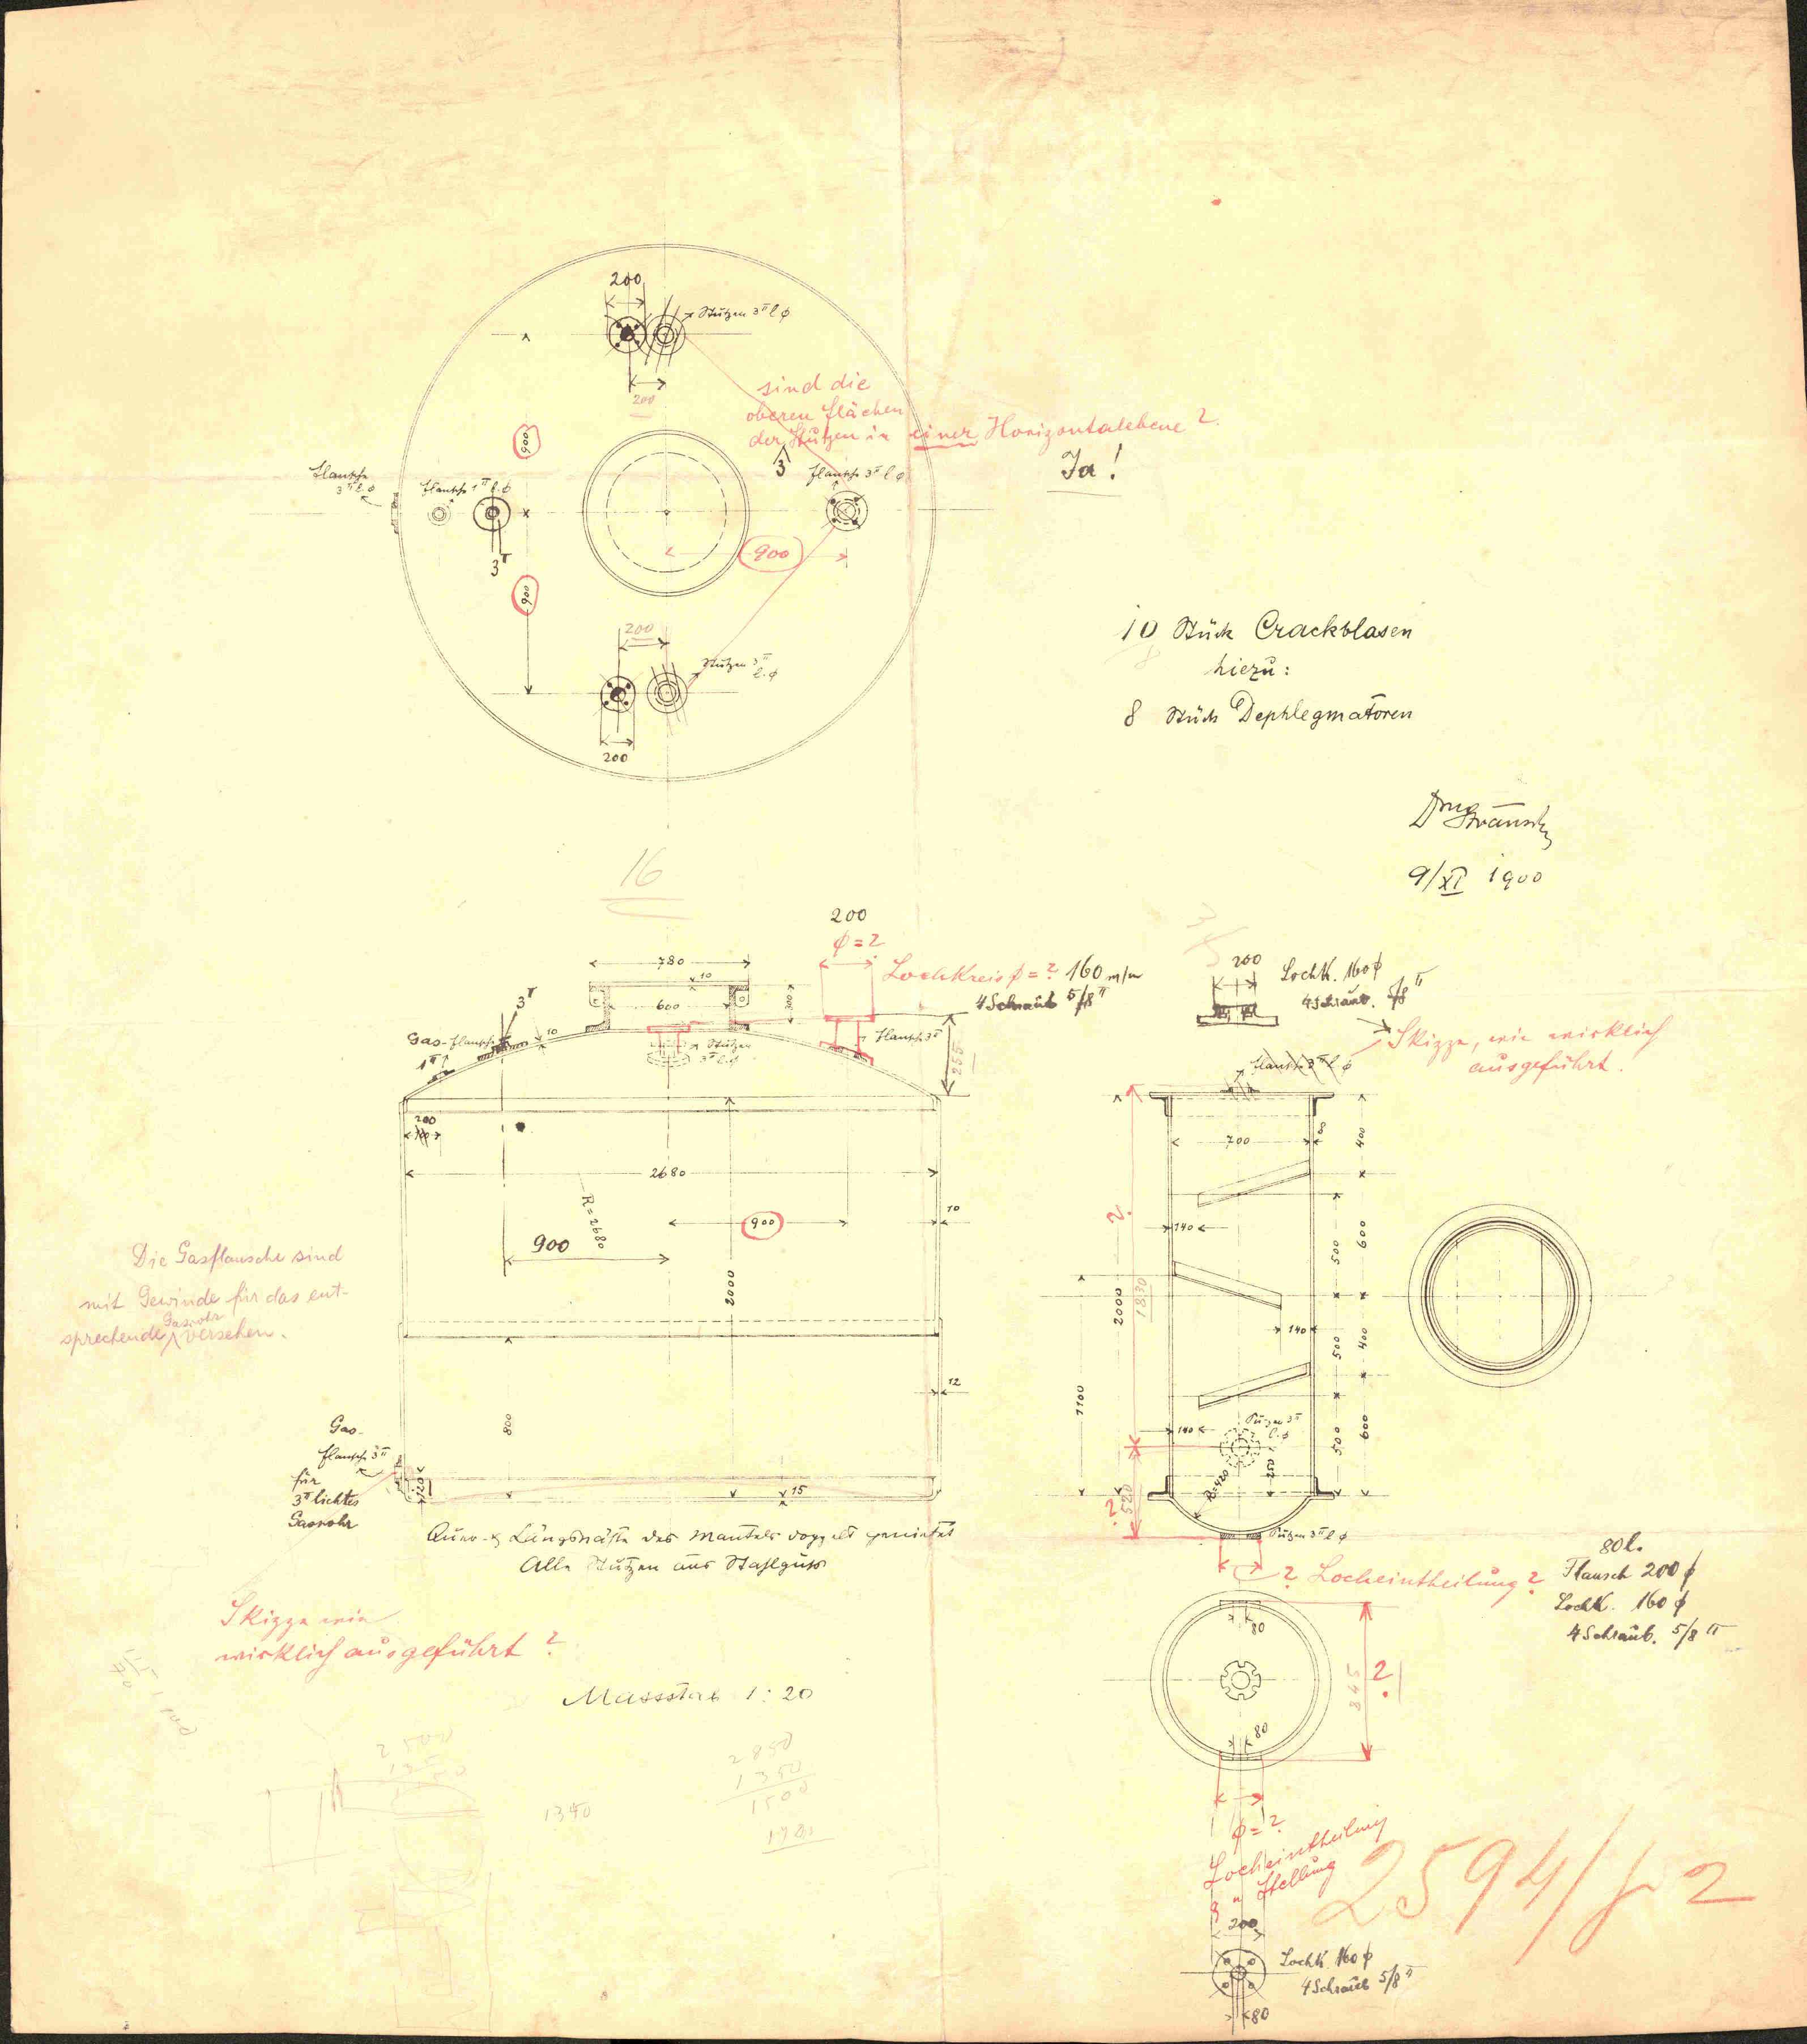 200
Stützen 3" l φ
200
sind die
oberen Flächen
der Stützen in einer Horizontalebene ?
Ja !
900
3
Flansche
3" l. φ
Flansche 1" l. φ
Flansche 3" l φ
3"
900
900
200
Stützen 3"
l. φ
200
10 Stück Crackblasen
8
hiezu :
8 Stück Dephlegmatoren
9/XI 1900
16
200
φ = ?
780
10
Lochkreis φ = ? 160 m/m
4 Schraub 5/8"
600
300
3"
Gas-Flansche
1"
10
Stützen
3" l. φ
Flansch 3"
255
200
2680
R = 2680
900
10
900
2000
Die Gasflansche sind
mit Gewinde für das ent-
Gasrohr
sprechende versehen.
12
800
Gas-
flansche 3"
für
3" lichtes
Gasrohr
120
15
Quer- & Längsnäthe des Mantels doppelt genietet
Alle Stützen aus Stahlguss
Skizze wie
wirklich ausgeführt ?
Massstab 1 : 20
2850
1350
1500
1340
200
Lochk. 160 φ
4 Schraub. 5/8"
Skizze, wie wirklich
ausgeführt.
Flansch 3" l φ
700
80
400
140
500
600
?
2000
1830
140
500
400
1100
140
Stützen 3"
l. φ
500
600
R=420
250
?
520
Stützen 3" l φ
? Locheintheilung ?
80 l.
Flansch 200 φ
Lochk. 160 φ
4 Schraub. 5/8"
80
845
?
80
φ = ?
Locheintheilung
& " Stellung
2594/f 2
200
Lochk. 160 φ
4 Schraub 5/8"
80